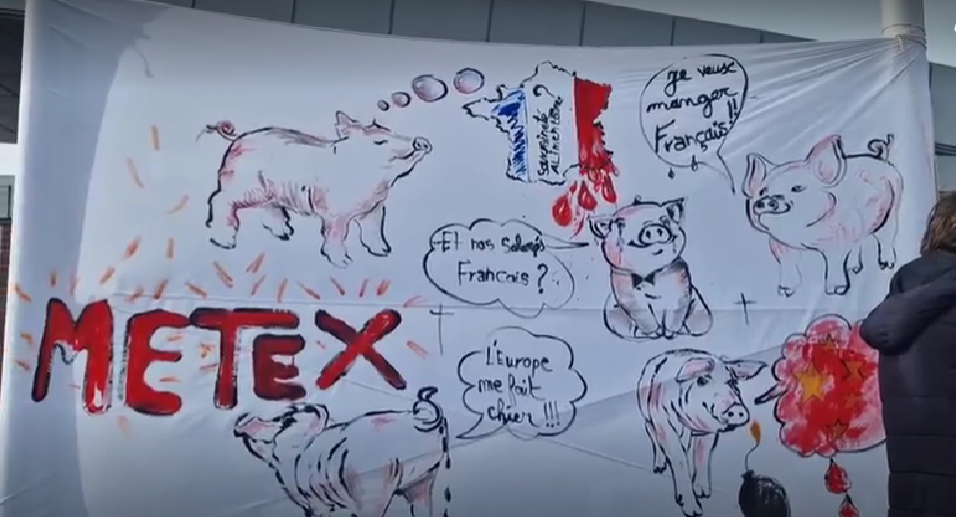 Souveraineté ?
ALIMENTAIRE
je veux
manger
Français!!
Et nos Salariés
Francais ?
METEX
L'Europe
me fait
chier !!!